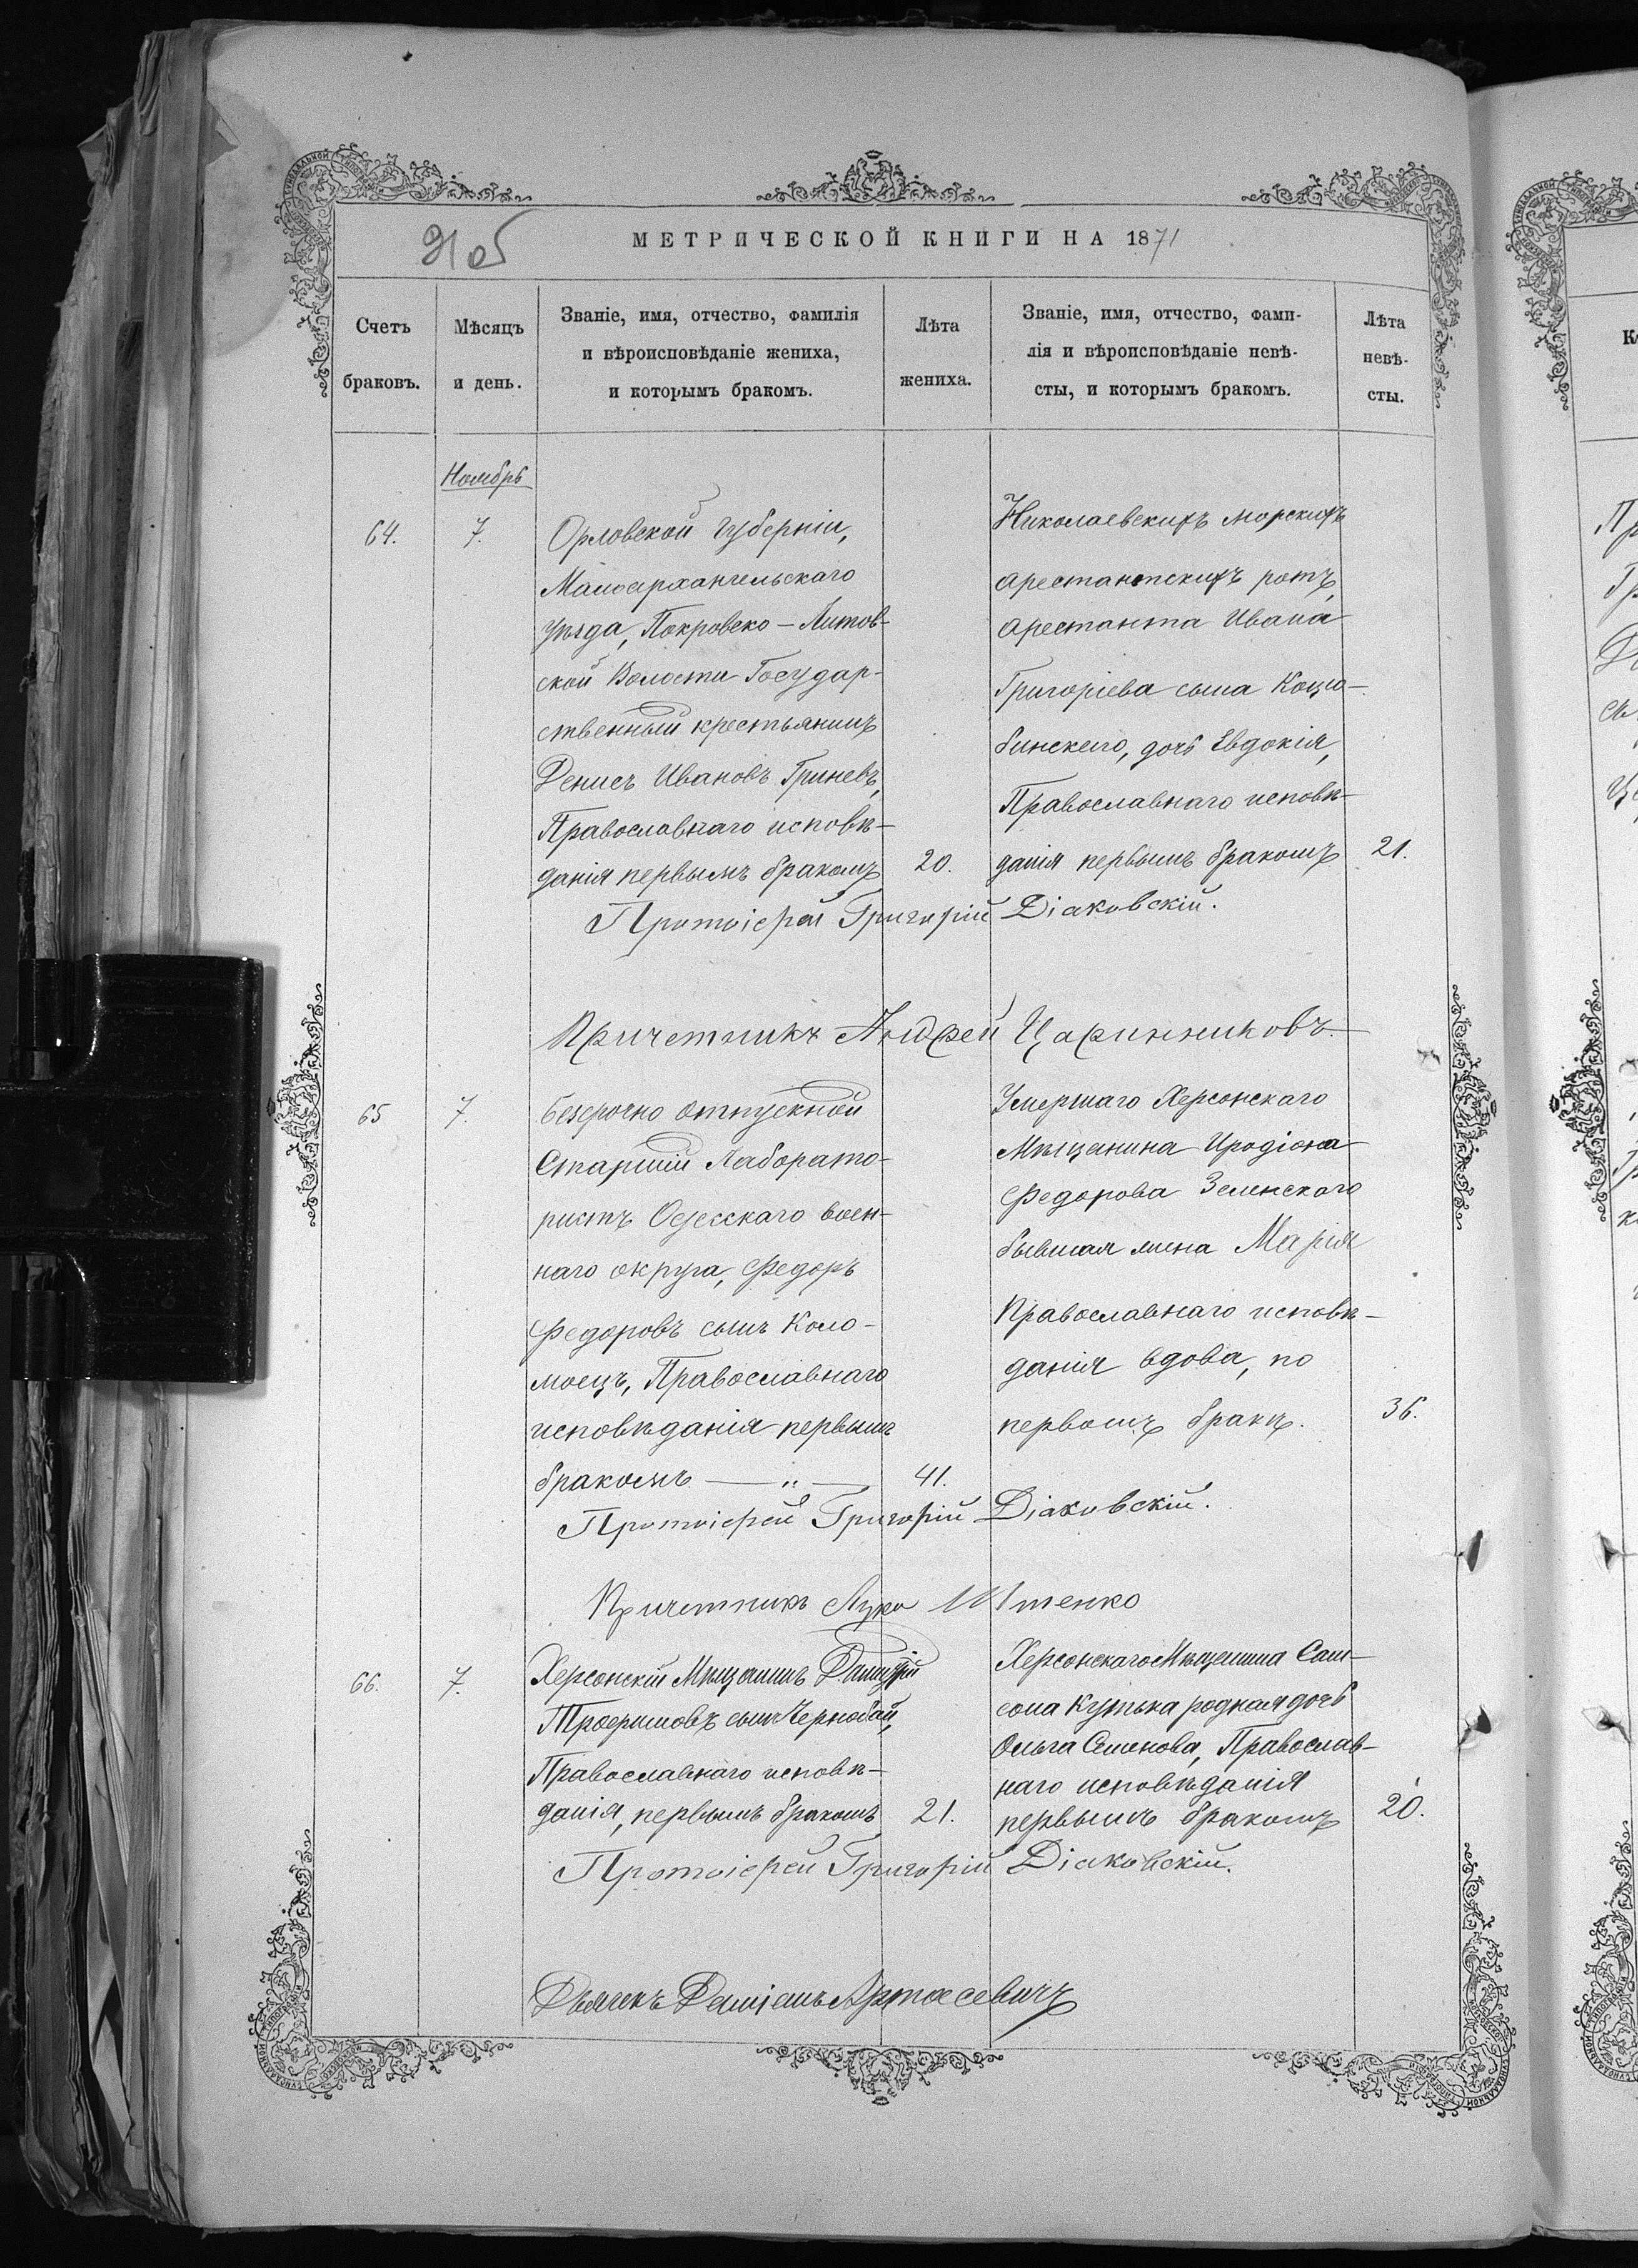 Ноб
МЕТРИЧЕСКОЙ КНИГИ НА 1871
Счетъ браковъ.
Мѣсяцъ и день.
Званіе, имя, отчество, фамилія
и вѣроисповѣданіе жениха,
и которымъ бракомъ.
Лѣта жениха.
Званіе, имя, отчество, фами-
лія и вѣроисповѣданіе невѣ-
сты, и которымъ бракомъ.
Лѣта невѣ-
сты.
Ноябрь
64. 7.
Орловской Губерніи,
Малоархангельскаго
уѣзда, Покровско-Литов-
ской Волости Государ-
ственный крестьянинъ
Денисъ Ивановъ Гриневъ,
Православнаго исповѣ-
данія первымъ бракомъ 20.
Николаевскихъ морскихъ
арестантскихъ ротъ,
арестанта Ивана
Григоріева сына Коцю-
бинскаго, дочь Евдокія,
Православнаго исповѣ-
данія первымъ бракомъ 21.
Протоіерей Григорій Діаковскій.
Причетникъ Андрей Царинниковъ
65 7.
Безсрочно отпускной
Старшій Лаборато-
ристъ Одесскаго воен-
наго округа, Федоръ
Федоровъ сынъ Коло-
моецъ, Православнаго
исповѣданія первымъ
бракомъ —"— 41.
Умершаго Херсонскаго
Мѣщанина Иродіона
Федорова Зеленскаго
бывшая жена Марія
Православнаго исповѣ-
данія вдова, по
первомъ бракѣ. 36.
Протоіерей Григорій Діаковскій.
Причетникъ Лука
66. 7.
Херсонскій Мѣщанинъ Димитрій
Трофимовъ сынъ Чернобай,
Православнаго исповѣ-
данія, первымъ бракомъ 21.
Херсонскаго Мѣщанина Сам-
сона Кутька родная дочь
Ольга Семенова, Православ-
наго исповѣданія
первымъ бракомъ 20.
Протоіерей Григорій Діаковскій.
Дьячекъ Даміанъ Артасевичъ